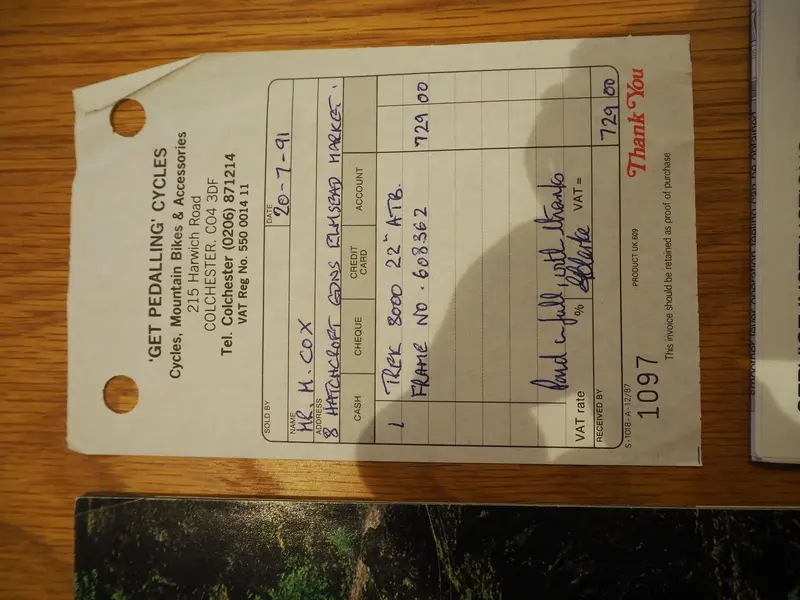 'GET PEDALLING' CYCLES
Cycles, Mountain Bikes & Accessories
215 Harwich Road
COLCHESTER. CO4 3DF
Tel. Colchester (0206) 871214
VAT Reg No. 550 0014 11
SOLD BY DATE 20-7-91
NAME MR. M. COX
ADDRESS 8 HATCHCROFT GDNS ELMSTEAD MARKET.
CASH CHEQUE CREDIT CARD ACCOUNT
1 TREK 8000 22" ATB.
FRAME NO. 608362 729 00
Paid in full with thanks
VAT rate % VAT =
RECEIVED BY 729 00
S-1018-A-12/87 PRODUCT UK 609 Thank You
1097
This invoice should be retained as proof of purchase